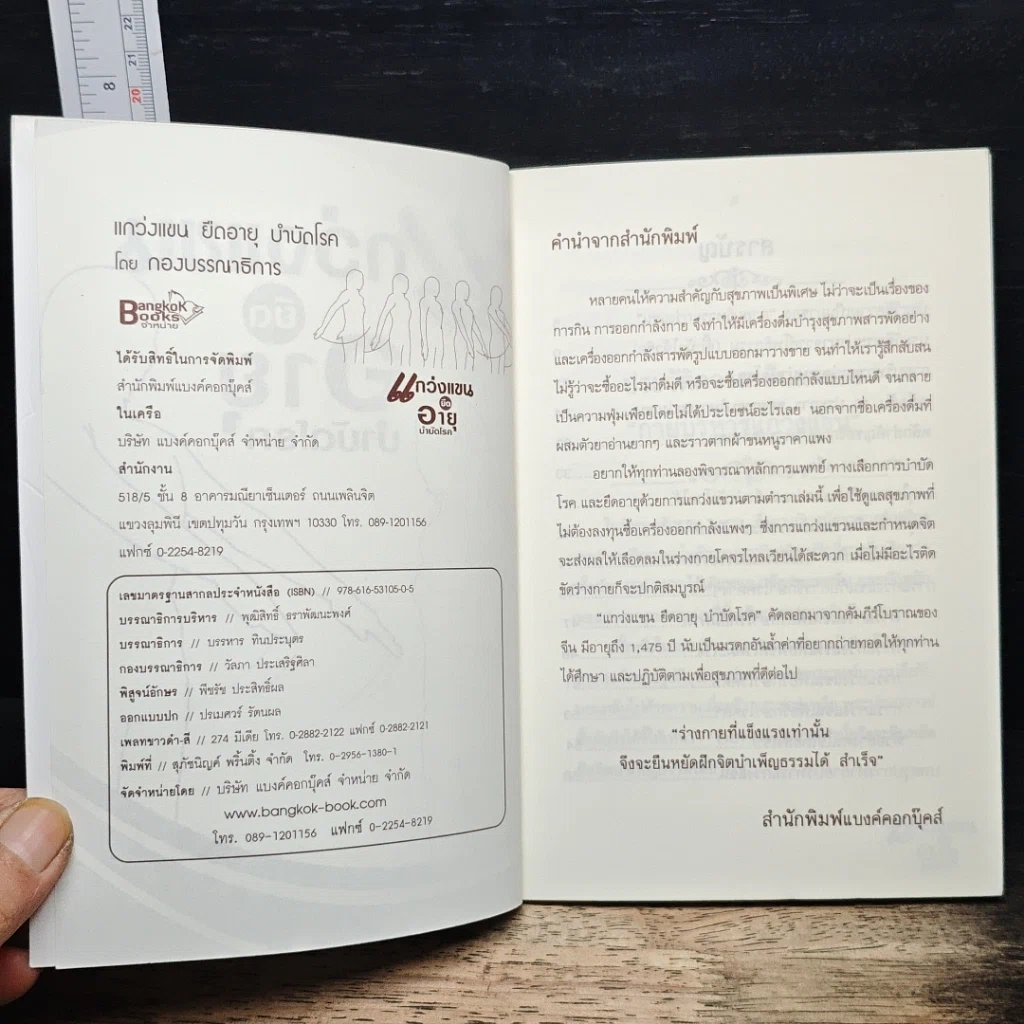 22
21
20
8
แกว่งแขน ยืดอายุ บำบัดโรค
โดย กองบรรณาธิการ
Bangkok
Books
จำหน่าย
ได้รับสิทธิ์ในการจัดพิมพ์
สำนักพิมพ์แบงค์คอกบุ๊คส์
ในเครือ
บริษัท แบงค์คอกบุ๊คส์ จำหน่าย จำกัด
สำนักงาน
518/5 ชั้น 8 อาคารมณียาเซ็นเตอร์ ถนนเพลินจิต
แขวงลุมพินี เขตปทุมวัน กรุงเทพฯ 10330 โทร. 089-1201156
แฟกซ์ 0-2254-8219
แกว่งแขน
ยืด
อายุ
บำบัดโรค
เลขมาตรฐานสากลประจำหนังสือ (ISBN) // 978-616-53105-0-5
บรรณาธิการบริหาร // พุฒิสิทธิ์ ธราพัฒนะพงศ์
บรรณาธิการ // บรรหาร ทินประบุตร
กองบรรณาธิการ // วัลภา ประเสริฐศิลา
พิสูจน์อักษร // พีชรัช ประสิทธิ์ผล
ออกแบบปก // ปรเมศวร์ รัตนผล
เพลทขาวดำ-สี // 274 มีเดีย โทร. 0-2882-2122 แฟกซ์ 0-2882-2121
พิมพ์ที่ // สุภัชนิญค์ พริ้นติ้ง จำกัด โทร. 0-2956-1380-1
จัดจำหน่ายโดย // บริษัท แบงค์คอกบุ๊คส์ จำหน่าย จำกัด
www.bangkok-book.com
โทร. 089-1201156 แฟกซ์ 0-2254-8219
คำนำจากสำนักพิมพ์
หลายคนให้ความสำคัญกับสุขภาพเป็นพิเศษ ไม่ว่าจะเป็นเรื่องของ
การกิน การออกกำลังกาย จึงทำให้มีเครื่องดื่มบำรุงสุขภาพสารพัดอย่าง
และเครื่องออกกำลังสารพัดรูปแบบออกมาวางขาย จนทำให้เรารู้สึกสับสน
ไม่รู้ว่าจะซื้ออะไรมาดื่มดี หรือจะซื้อเครื่องออกกำลังแบบไหนดี จนกลาย
เป็นความฟุ่มเฟือยโดยไม่ได้ประโยชน์อะไรเลย นอกจากชื่อเครื่องดื่มที่
ผสมตัวยาอ่านยากๆ และราวตากผ้าขนหนูราคาแพง
อยากให้ทุกท่านลองพิจารณาหลักการแพทย์ ทางเลือกการบำบัด
โรค และยืดอายุด้วยการแกว่งแขวนตามตำราเล่มนี้ เพื่อใช้ดูแลสุขภาพที่
ไม่ต้องลงทุนซื้อเครื่องออกกำลังแพงๆ ซึ่งการแกว่งแขวนและกำหนดจิต
จะส่งผลให้เลือดลมในร่างกายโคจรไหลเวียนได้สะดวก เมื่อไม่มีอะไรติด
ขัดร่างกายก็จะปกติสมบูรณ์
"แกว่งแขน ยืดอายุ บำบัดโรค" คัดลอกมาจากคัมภีร์โบราณของ
จีน มีอายุถึง 1,475 ปี นับเป็นมรดกอันล้ำค่าที่อยากถ่ายทอดให้ทุกท่าน
ได้ศึกษา และปฏิบัติตามเพื่อสุขภาพที่ดีต่อไป
"ร่างกายที่แข็งแรงเท่านั้น
จึงจะยืนหยัดฝึกจิตบำเพ็ญธรรมได้ สำเร็จ"
สำนักพิมพ์แบงค์คอกบุ๊คส์